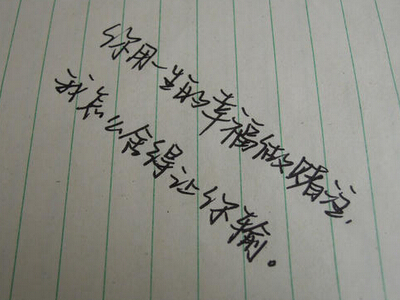 你用一生的幸福做赌注,
我怎么舍得让你输。